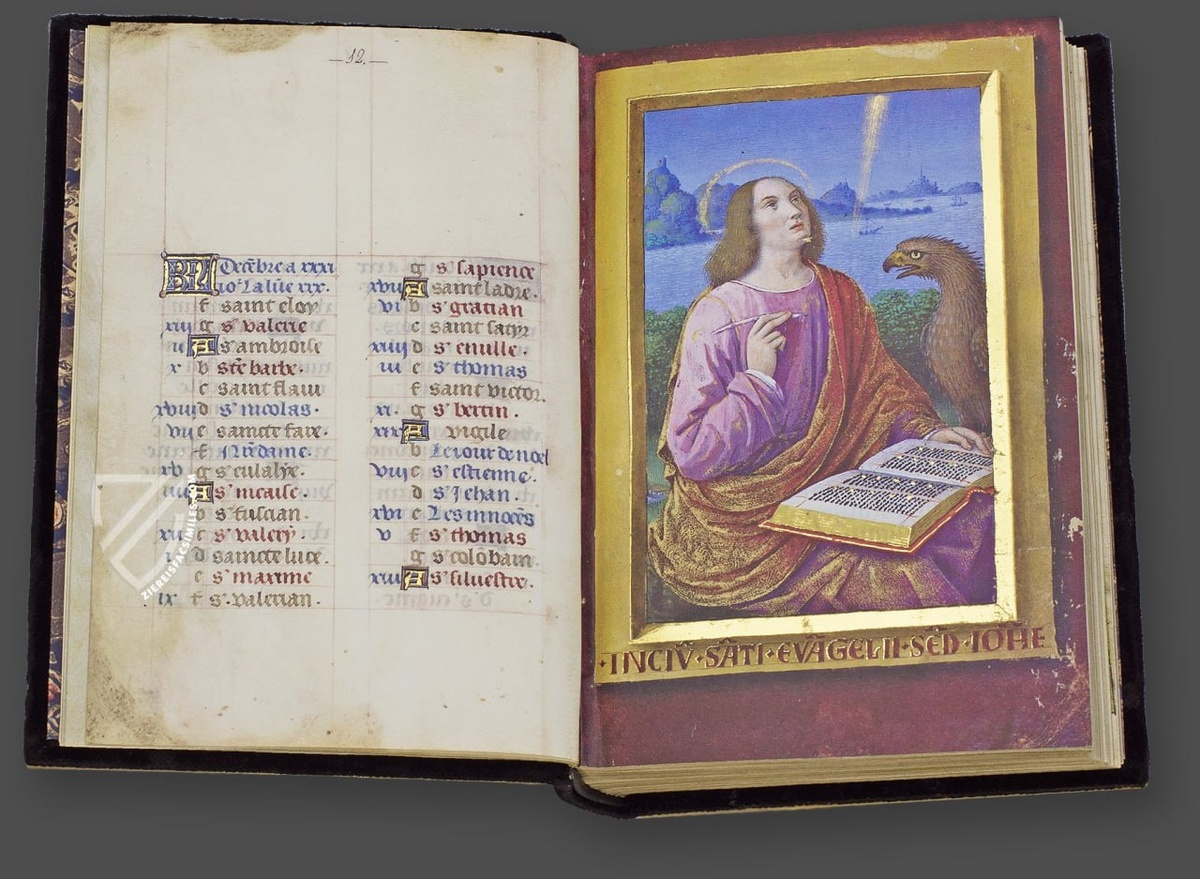 12.
BN Decẽbre a xxxi
io's La lũe xxx.
f saint eloy
xiii g s' valerie
ii A s' ambroise
x b ste barbe.
c saint flaui
xviii d s' nicolas.
vii e saincte fare.
f Nre dame.
xv g s' eulalye.
iiii A s' nicaise.
b s' fuscian.
xii c s' valery.
i d saincte luce.
e s' maxime
ix f s' valerian.
g s' sapience
xvii A saint ladre.
vi b s' gratian
c saint satyr
xiiii d s' enulle.
iii e s' thomas
f saint victor.
xi. g s' bertin.
xix A vigile
b Le iour de noel
viii c s' estienne.
d s' Jehan.
xvi e Les innocẽs
v f s' thomas
g s' colõbain.
xiii A s' siluestre.
·INCIV̄·SĀTI·EVĀGELII·SĒD·IOH̄E
ZIEREISFACSIMILES